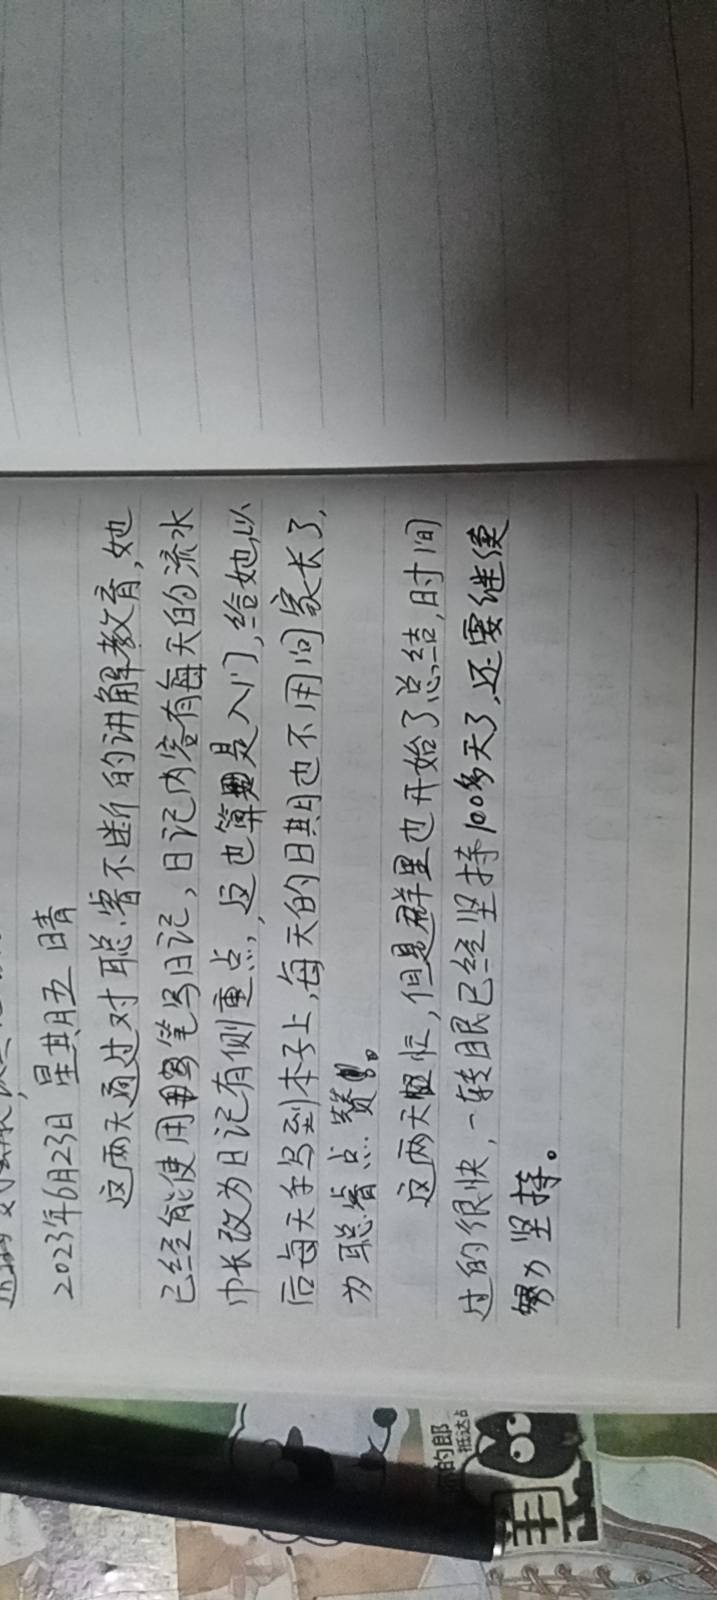 2023年6月23日 星期五 晴
这两天通过对聪睿不断的讲解教育,她
已经能使用写笔写日记,日记内容有每天的流水
巾长改为日记有侧重点,这也算是入门,给她,以
后每天写到本子上,每天的日期也不用问家长了,
为聪睿点赞。
这两天忙,但是群里也开始了总结,时间
过的很快,一转眼已经坚持100多天了,还要继续
努力坚持。
的郎
抵达点